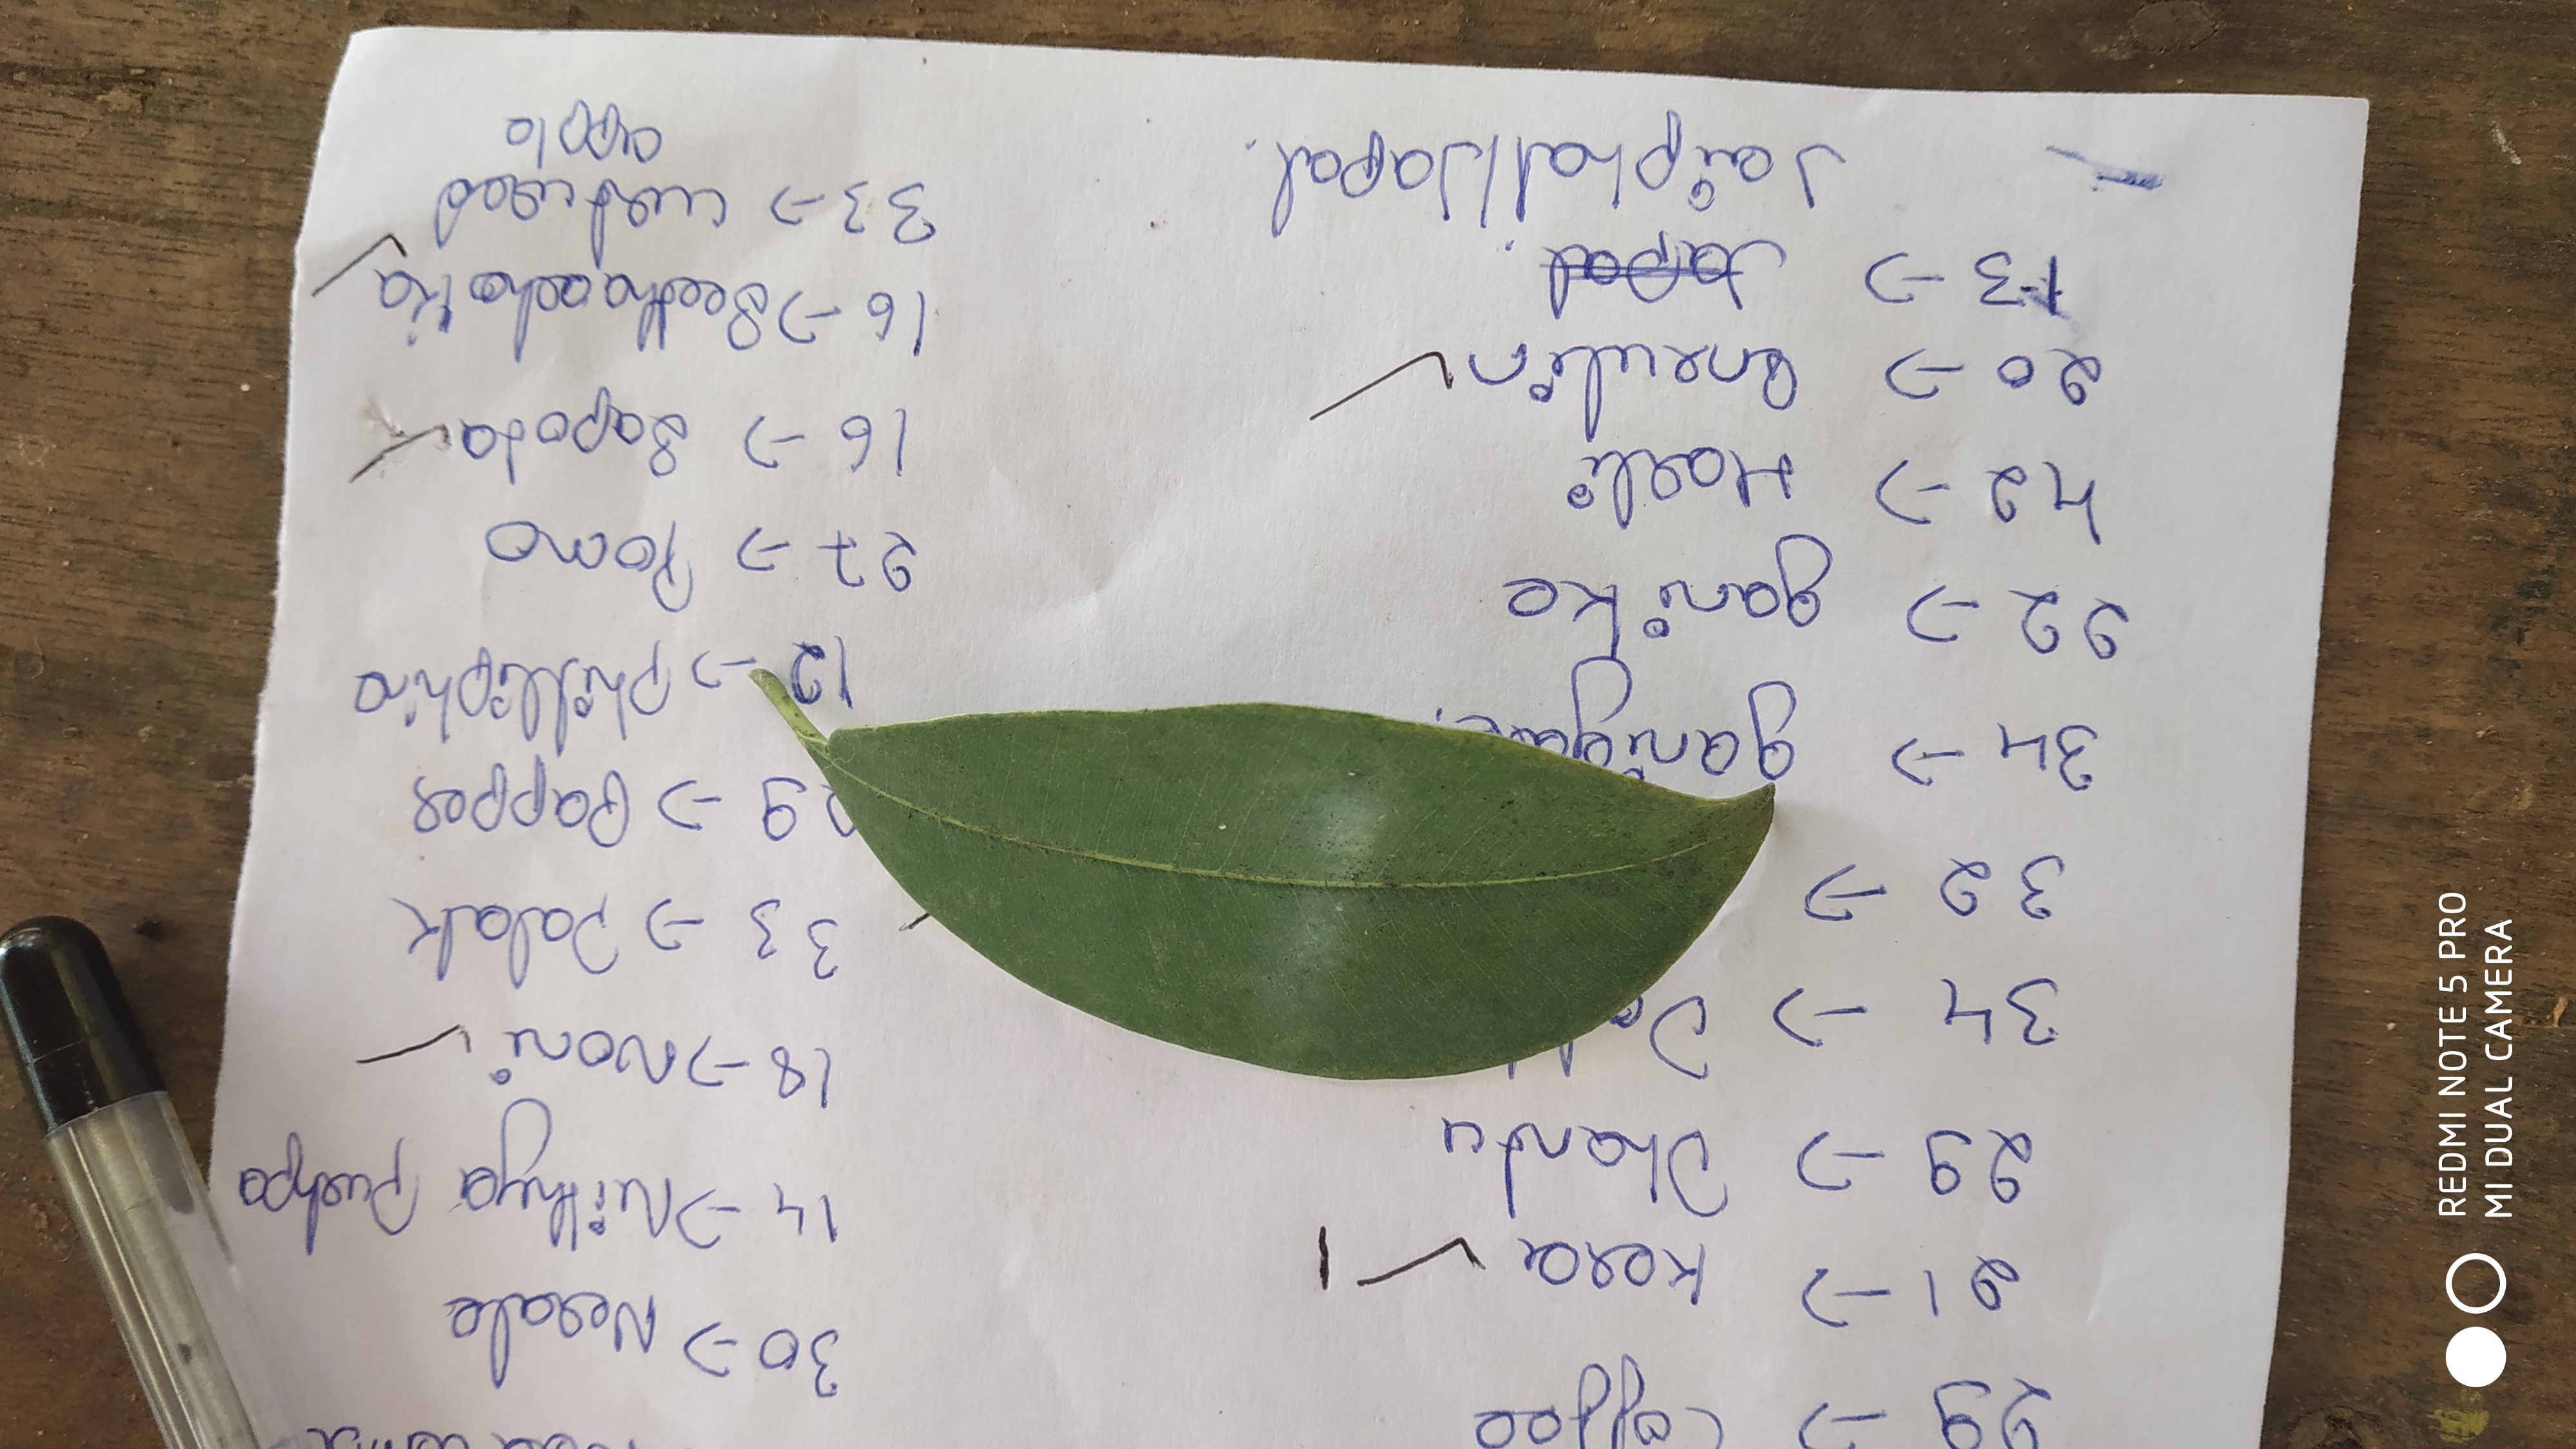 29 → Coffee
21 → Kera ✓
29 → Dhantu
34 →
32 →
34 →
22 → ganike
42 → Harli
20 → Insulin ✓
13 → Japal
Jaiphal/Japal.
30 → Nerale
14 → Nithya Pushpa
18 → Noni ✓
33 → Palak
29 → Papper
12 → Philliphine
27 → Pomo
16 → Sapota ✓
16 → Seethaashoka ✓
33 → custurad
apple
REDMI NOTE 5 PRO
MI DUAL CAMERA